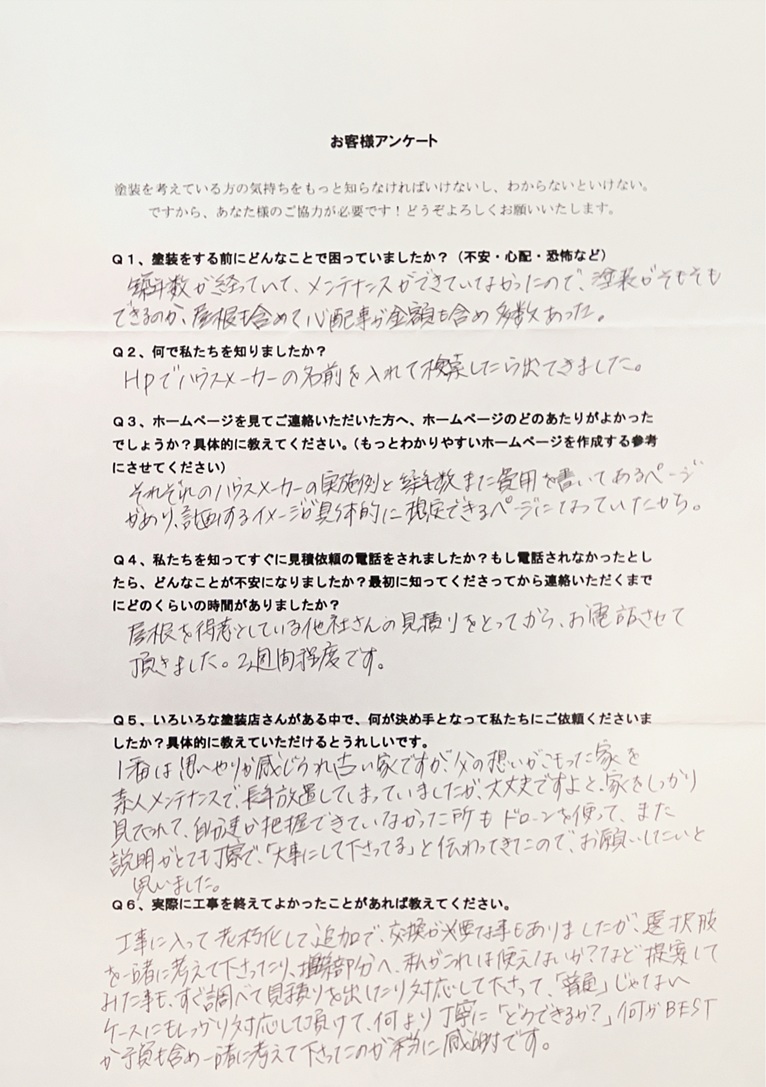 お客様アンケート
塗装を考えている方の気持ちをもっと知らなければいけないし、わからないといけない。
ですから、あなた様のご協力が必要です！どうぞよろしくお願いいたします。
Q1、塗装をする前にどんなことで困っていましたか？（不安・心配・恐怖など）
築年数が経っていて、メンテナンスができていなかったので、塗装がそもそも
できるのか、屋根も含めて心配事が金額も含め多数あった。
Q2、何で私たちを知りましたか？
HPでハウスメーカーの名前を入れて検索したら出てきました。
Q3、ホームページを見てご連絡いただいた方へ、ホームページのどのあたりがよかった
でしょうか？具体的に教えてください。（もっとわかりやすいホームページを作成する参考
にさせてください）
それぞれのハウスメーカーの実施例と築年数また費用を書いてあるページ
があり、計画するイメージが具体的に想定できるページになっていたから。
Q4、私たちを知ってすぐに見積依頼の電話をされましたか？もし電話されなかったとし
たら、どんなことが不安になりましたか？最初に知ってくださってから連絡いただくまで
にどのくらいの時間がありましたか？
屋根を得意としている他社さんの見積りをとってから、お電話させて
頂きました。2週間程度です。
Q5、いろいろな塗装店さんがある中で、何が決め手となって私たちにご依頼くださいま
したか？具体的に教えていただけるとうれしいです。
1番は思いやりが感じられ古い家ですが、父の想いがこもった家を
素人メンテナンスで、長年放置してしまっていましたが、大丈夫ですよと、家をしっかり
見たれて、自分達が把握できていなかった所もドローンを使って、また
説明がとても丁寧で、「大事にして下さってる」と伝わってきたので、お願いしたいと
思いました。
Q6、実際に工事を終えてよかったことがあれば教えてください。
工事に入って老朽化して追加で、交換が必要な事もありましたが、選択肢
を一緒に考えて下さったり、部分へ、私がこれは使えないか？など提案して
みた事も、すぐ調べて見積りを出したり対応して下さって、「普通」じゃない
ケースにもしっかり対応して頂けて、何より丁寧に「どうできるか？」何がBEST
か予算も含め一緒に考えて下さったのが本当に感謝です。